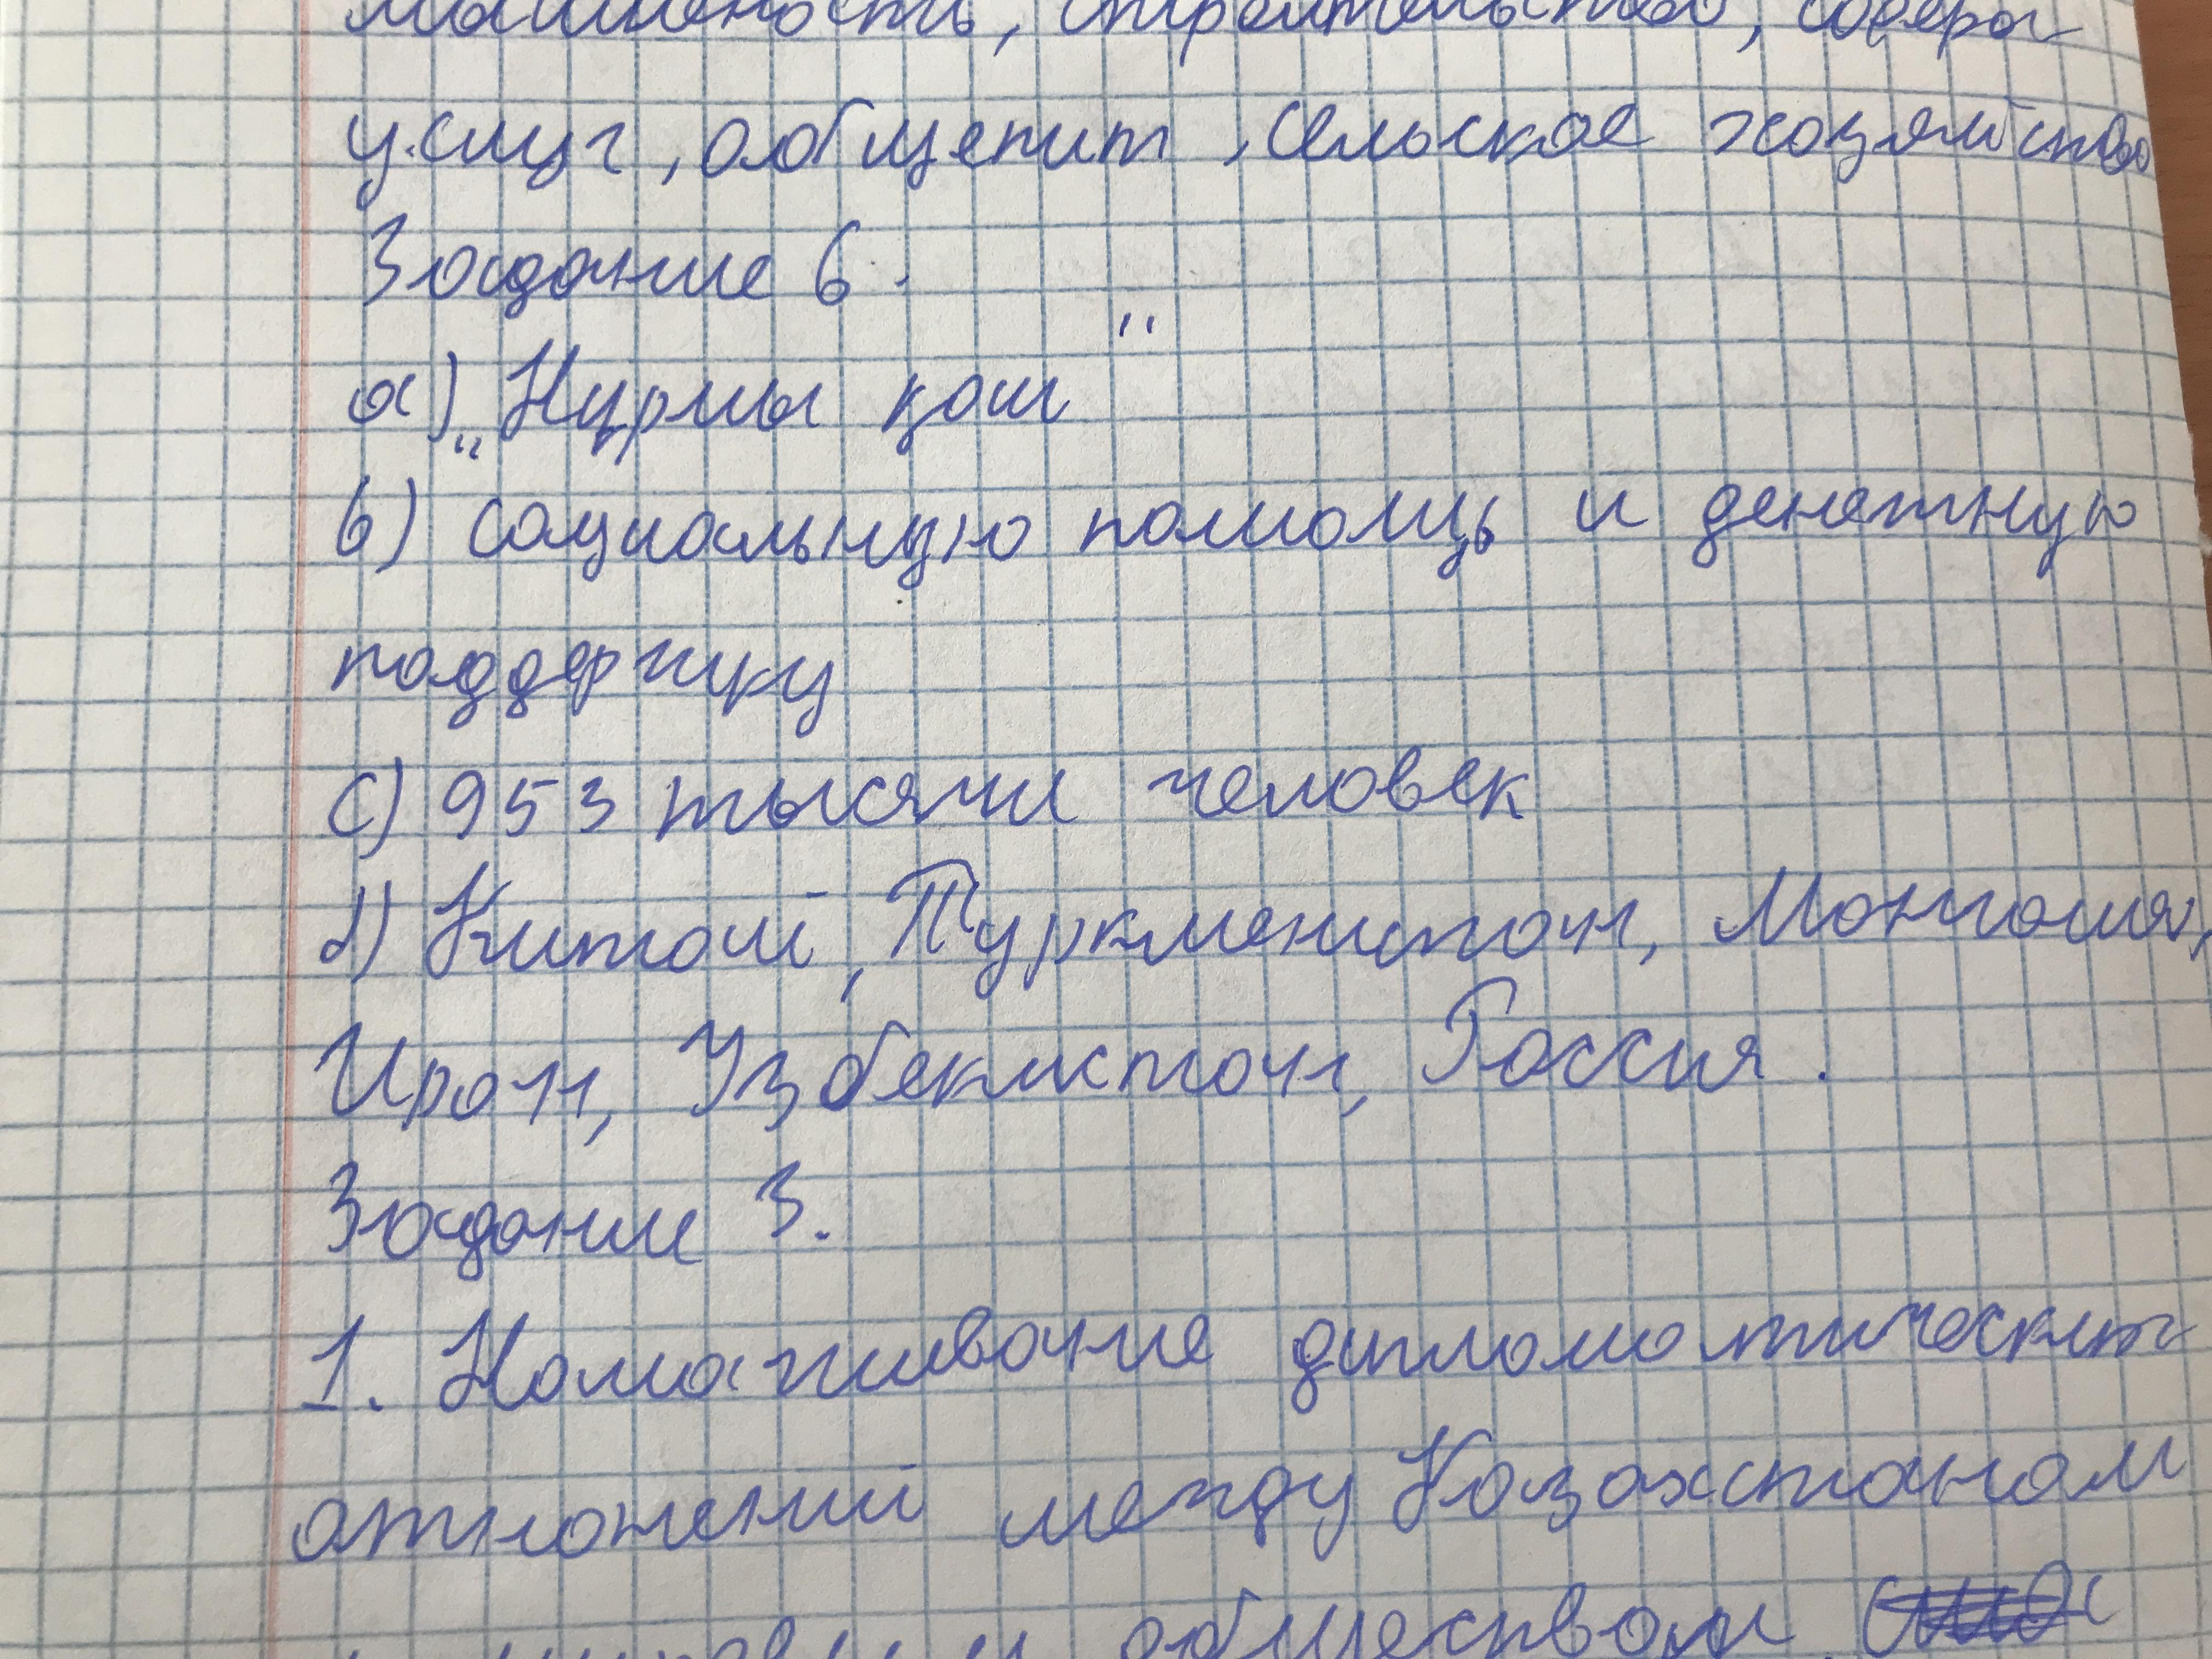 мышленность, строительство, сферы
услуг, общепит, сельское хозяйство
Задание 6.
а) „Нұрлы көш"
b) социальную помощь и денежную
поддержку
с) 953 тысячи человек
d) Китай, Туркменистан, Монголия,
Иран, Узбекистан, Россия.
Задание 3.
1. Налаживание дипломатических
отношений между Казахстаном
и мировым обществом.